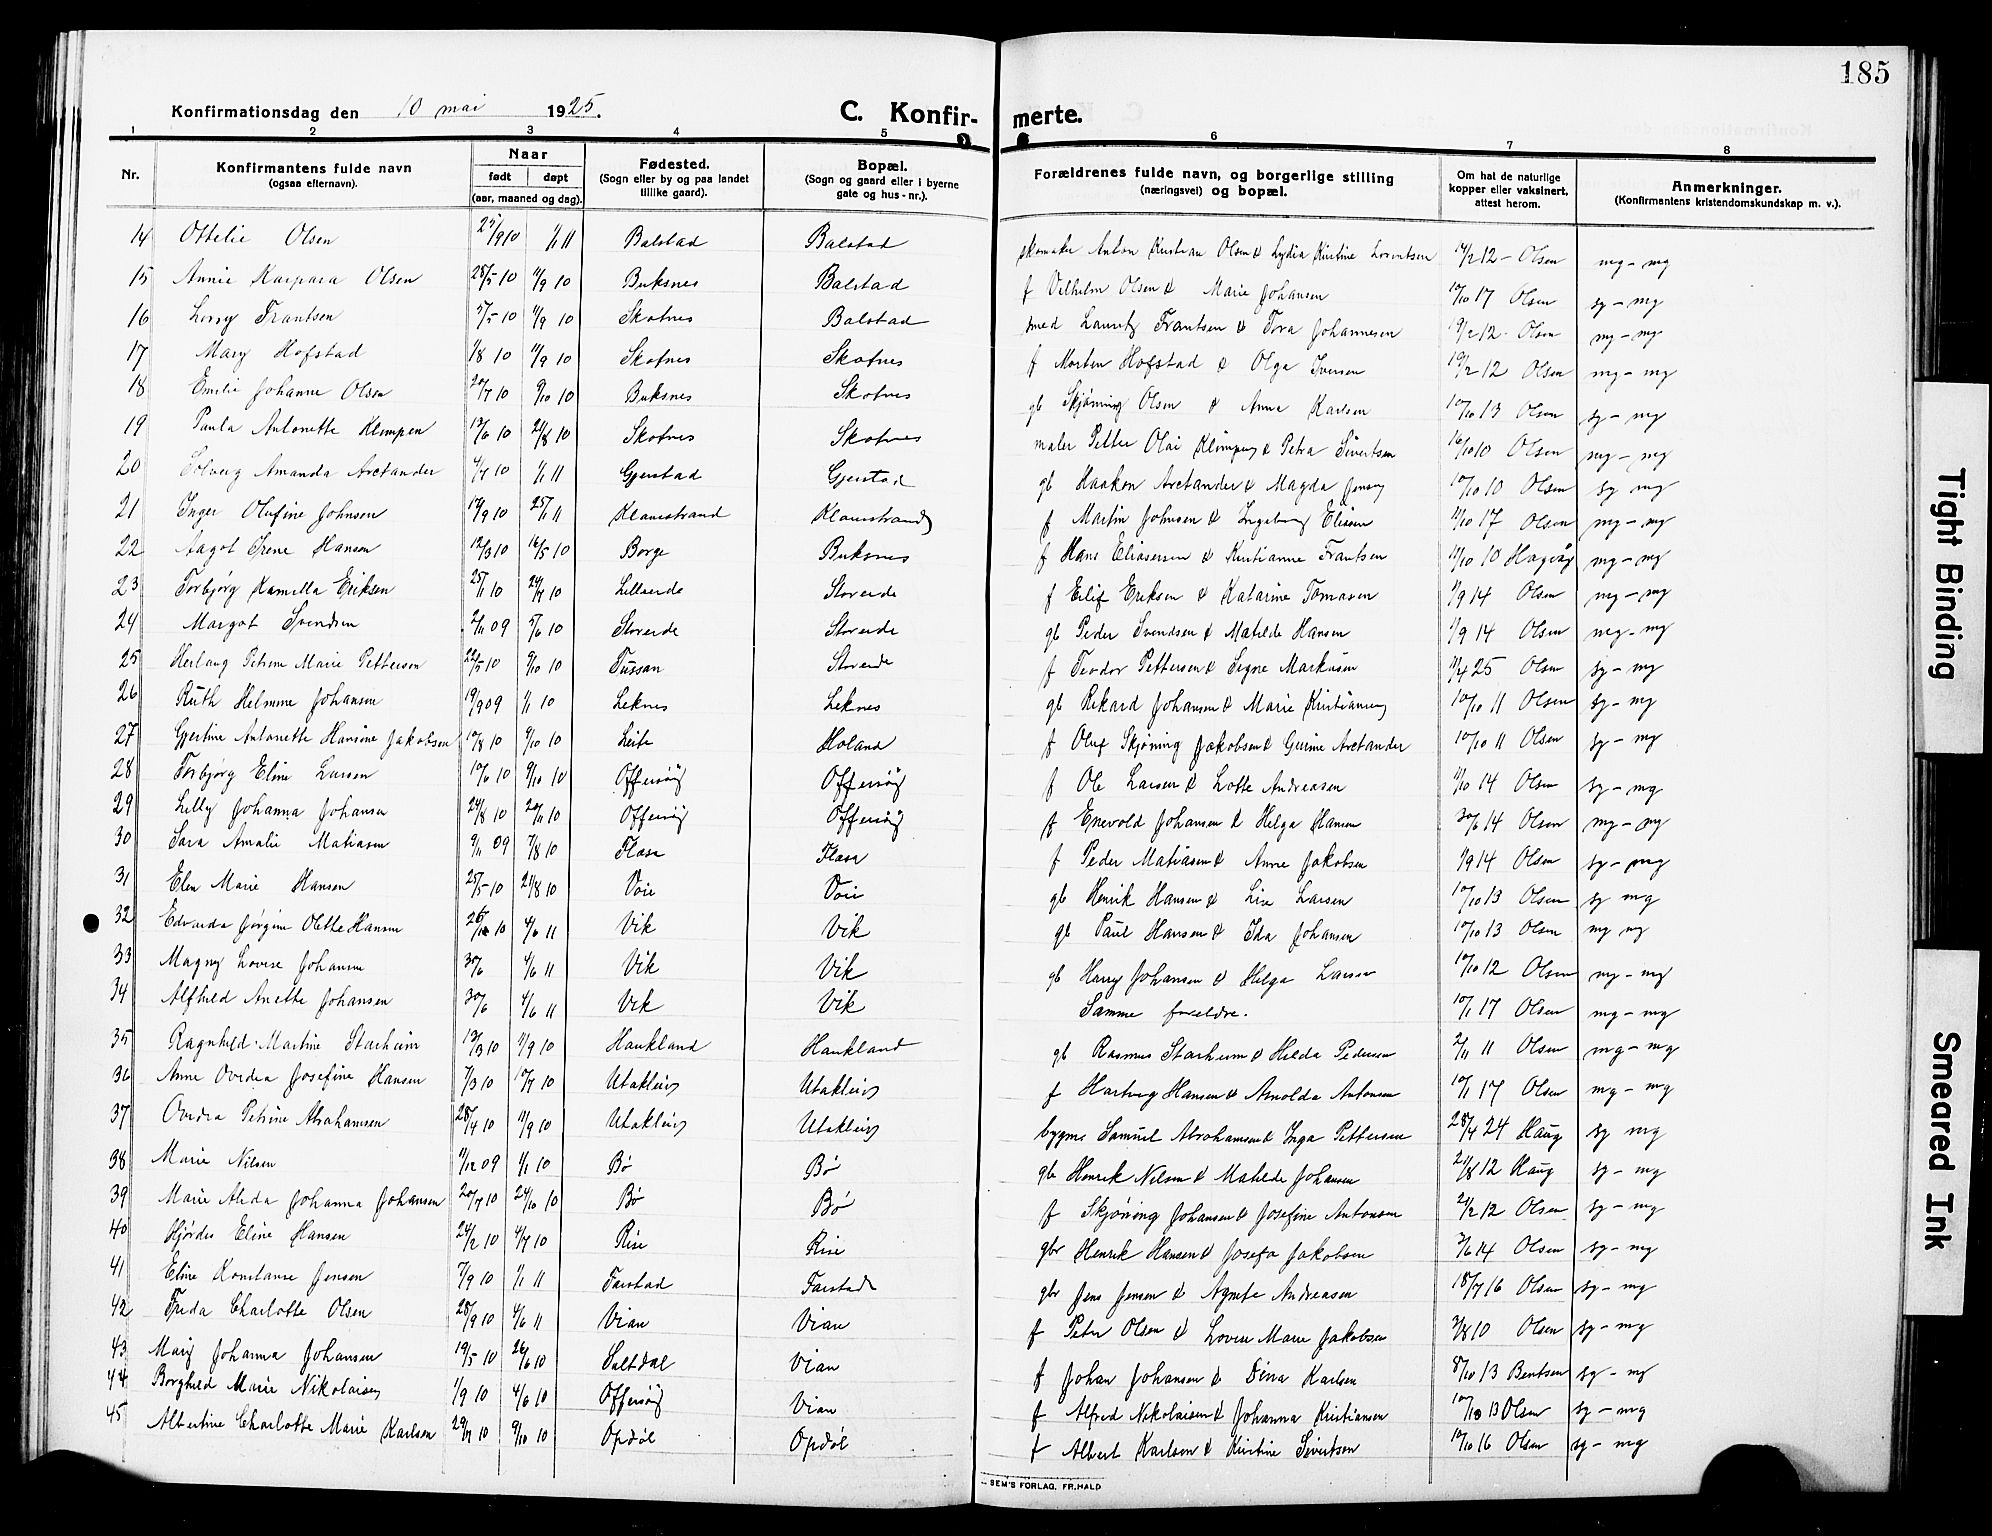 185
Konfirmationsdag den 10 mai 1925.
C. Konfir- merte.
1 2 3 4 5 6 7 8
Nr.
Konfirmantens fulde navn
(ogsaa efternavn).
Naar
født døpt
(aar, maaned og dag).
Fødested.
(Sogn eller by og paa landet
tillike gaard).
Bopæl.
(Sogn og gaard eller i byerne
gate og hus-nr.).
Forældrenes fulde navn, og borgerlige stilling
(næringsvei) og bopæl.
Om hat de naturlige
kopper eller vaksinert,
attest herom.
Anmerkninger.
(Konfirmantens kristendomskundskap m. v.).
14 Ottelie Olsen 25/9 10 1/1 11 Balstad Balstad skomaker Anton Kristian Olsen & Lydia Kristine Lorentsen 14/2 12 - Olsen mg - mg
15 Annie Kaspara Olsen 28/5 10 11/9 10 Buksnes Balstad f Vilhelm Olsen & Marie Johansen 10/10 17 Olsen sg - mg
16 Lorry Frantsen 5/5 10 11/9 10 Skotnes Balstad smed Lauritz Frantsen & Tora Johannesen 19/2 12 - Olsen mg - mg
17 Mary Hofstad 1/8 10 11/9 10 Skotnes Skotnes f Morten Hofstad & Olga Iversen 19/2 12 Olsen mg - mg
18 Emilie Johanne Olsen 20/7 10 9/10 10 Buksnes Skotnes gb Skjøning Olsen & Anna Karlsen 10/10 13 Olsen sg - mg
19 Paula Antonette Klimpen 13/6 10 21/8 10 Skotnes Skotnes maler Petter Olai Klimpen & Petra Sivertsen 16/10 10 Olsen mg - mg
20 Solveig Amanda Arctander 4/7 10 1/1 11 Gjerstad Gjerstad gb Haakon Arctander & Magda Jensen 10/10 10 Olsen sg mg
21 Inger Olufine Johnsen 14/9 10 25/1 11 Klauestrand Klauestrand f Martin Johnsen & Ingeborg Elisen 11/10 17 Olsen mg - mg
22 Aagot Irene Hansen 12/3 10 16/5 10 Borge Buksnes f Hans Eliasersen & Kristianne Frantsen 11/10 10 Hagvåg mg - mg
23 Torbjørg Kamilla Eriksen 25/1 10 24/7 10 Lilleeide Storeide f Eilif Eriksen & Katarine Tomasen 1/9 14 Olsen mg - mg
24 Margot Svendsen 2/11 09 5/6 10 Storeide Storeide gb Peder Svendsen & Matilde Hansen 1/9 14 Olsen mg - mg
25 Herlaug Petrine Marie Pettersen 22/5 10 9/10 10 Tussan Storeide f Teodor Pettersen & Signe Markusen 11/4 25 Olsen sg - mg
26 Ruth Helmine Johansen 19/9 09 1/1 10 Leknes Leknes gb Rikard Johansen & Marie Kristiansen 10/10 11 Olsen sg - mg
27 Gjertine Antonette Hansine Jakobsen 10/8 10 9/10 10 Leite Holand f Oluf Skjøning Jakobsen & Gurine Arctander 10/10 11 Olsen sg - mg
28 Torbjørg Eline Larsen 10/6 10 9/10 10 Offersøy Offersøy f Ole Larsen & Lotte Andreasen 11/10 14 Olsen sg - mg
29 Lilly Johanna Johansen 24/8 10 20/11 10 Offersøy Offersøy f Enevold Johansen & Helga Hansen 30/6 14 Olsen mg - mg
30 Sara Amalie Matiasen 9/11 09 7/8 10 Flæsa Flasa f Peder Matiasen & Anne Jakobsen 1/9 14 Olsen sg - mg
31 Elen Marie Hansen 25/5 10 21/8 10 Voie Voie gb Henrik Hansen & Lise Larsen 10/10 13 Olsen sg mg
32 Edvarda Jørgine Olette Hansen 26/12 10 4/6 11 Vik Vik gb Paul Hansen & Ida Johansen 10/10 13 Olsen mg mg
33 Magny Lovise Johansen 30/6 4/6 11 Vik Vik gb Harry Johansen & Helga Larsen 10/10 12 Olsen mg - mg
34 Alfhild Anette Johansen 30/6 4/6 11 Vik Vik Samme foreldre. 10/1 17 Olsen mg - mg
35 Ragnhild Martine Starheim 13/3 10 11/9 10 Haukland Haukland gb Rasmus Starheim & Hilda Pedersen 2/11 11 Olsen mg - mg
36 Anne Ovidia Josefine Hansen 7/3 10 10/7 10 Utakleiv Utakleiv f Hartvig Hansen & Arnolda Antonsen 10/1 17 Olsen mg - mg
37 Ovidia Petrine Abrahamsen 28/4 10 11/9 10 Utakleiv Utakleiv bygm. Samuel Abrahamsen & Inga Pettersen 28/4 24 Haug sg mg
38 Marie Nilsen 11/12 09 1/1 10 Bø Bø gb Henrik Nilsen & Matilde Johansen 21/8 12 Haug sg - mg
39 Marie Alida Johanna Johansen 20/7 10 24/10 10 Bø Bø f Skjøning Johansen & Josefine Antonsen 21/2 12 Olsen sg - mg
40 Hjørdis Eline Hansen 24/2 10 4/7 10 Rise Rise gbr Henrik Hansen & Josefa Jakobsen 3/6 14 Olsen sg - mg
41 Eline Konstanse Jensen 7/9 10 1/1 11 Farstad Farstad gbr Jens Jensen & Agnete Andreasen 18/7 16 Olsen sg - mg
42 Frida Charlotte Olsen 28/9 10 4/6 11 Vian Vian f Peter Olsen & Lovise Marie Jakobsen 3/8 10 Olsen sg - mg
43 Mary Johanna Johansen 19/5 10 26/6 10 Saltdal Vian f Johan Johansen & Dina Karlsen 8/10 13 Bentsen sg - mg
44 Borghild Marie Nikolaisen 1/9 10 4/6 10 Offersøy Vian f Alfred Nikolaisen & Johanna Kristiansen 10/10 13 Olsen sg - mg
45 Albertine Charlotte Marie Karlsen 29/7 10 9/10 10 Opdøl Opdøl f Albert Karlsen & Kristine Sivertsen 10/10 16 Olsen sg - mg
SEM'S FORLAG, FR.HALD
Tight Binding
Smeared Ink